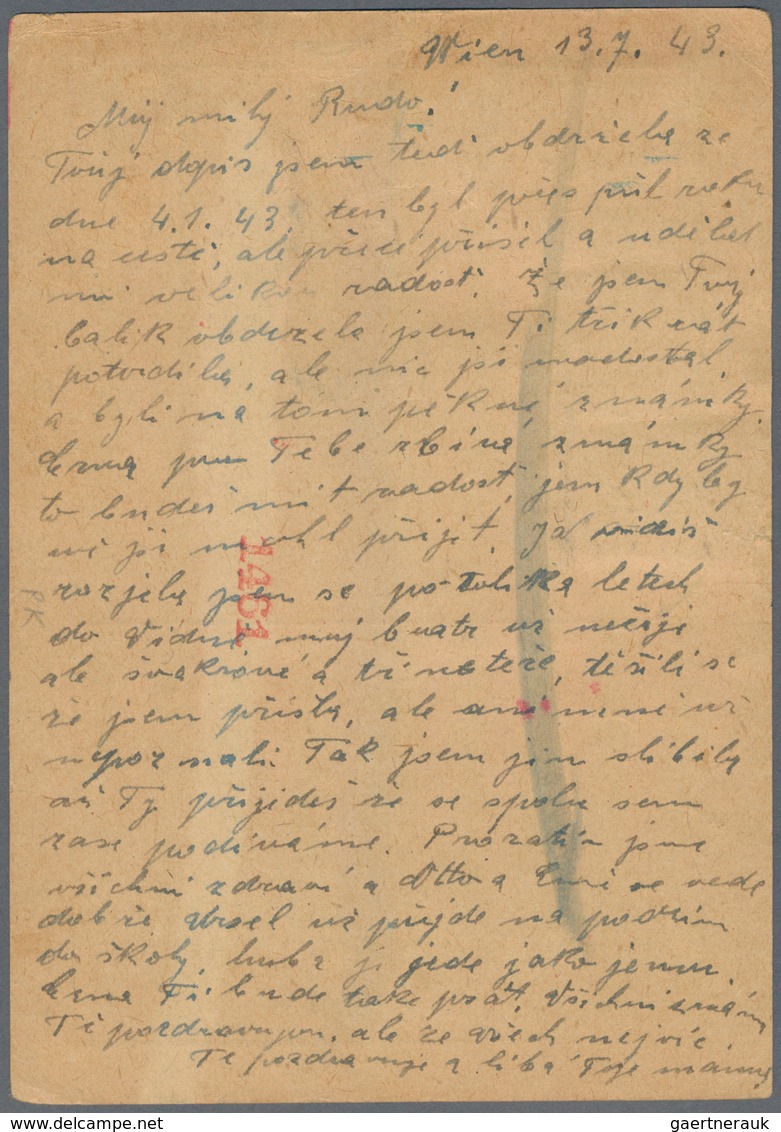 Wien 13.7.43.
Můj milý Rudo!
Tvůj dopis jsem teď obdržela ze
dne 4.1.43, ten byl přes půl roku
na cestě, ale přeci přišel a udělal
mi velikou radost. Že jsem Tvůj
balík obdržela jsem Ti třikrát
potvrdila, ale nic jsi nedostal
a byli na tom pěkné známky.
Erna pro Tebe sbírá známky
to budeš mít radost, jen kdyby
už jsi mohl přijít. Já vidíš
rozjela jsem se po tolika letech
do Vídně můj bratr už nežije
ale švakrové a tři neteře, těšili se
že jsem přišla, ale ani mne už
nepoznali. Tak jsem jim slíbila
až Ty přijedeš že se spolu sem
zase podíváme. Prozatím jsme
všichni zdraví a Otto a Emi se vede
dobře už přijde na podzim
do školy, huba ji jede jako jemu.
Erna Ti bude také psát. Všichni známí
Tě pozdravujou, ale ze všech nejvíc
Tě pozdravuje a líbá Tvoje máma
1461
PK
gaertnerauk